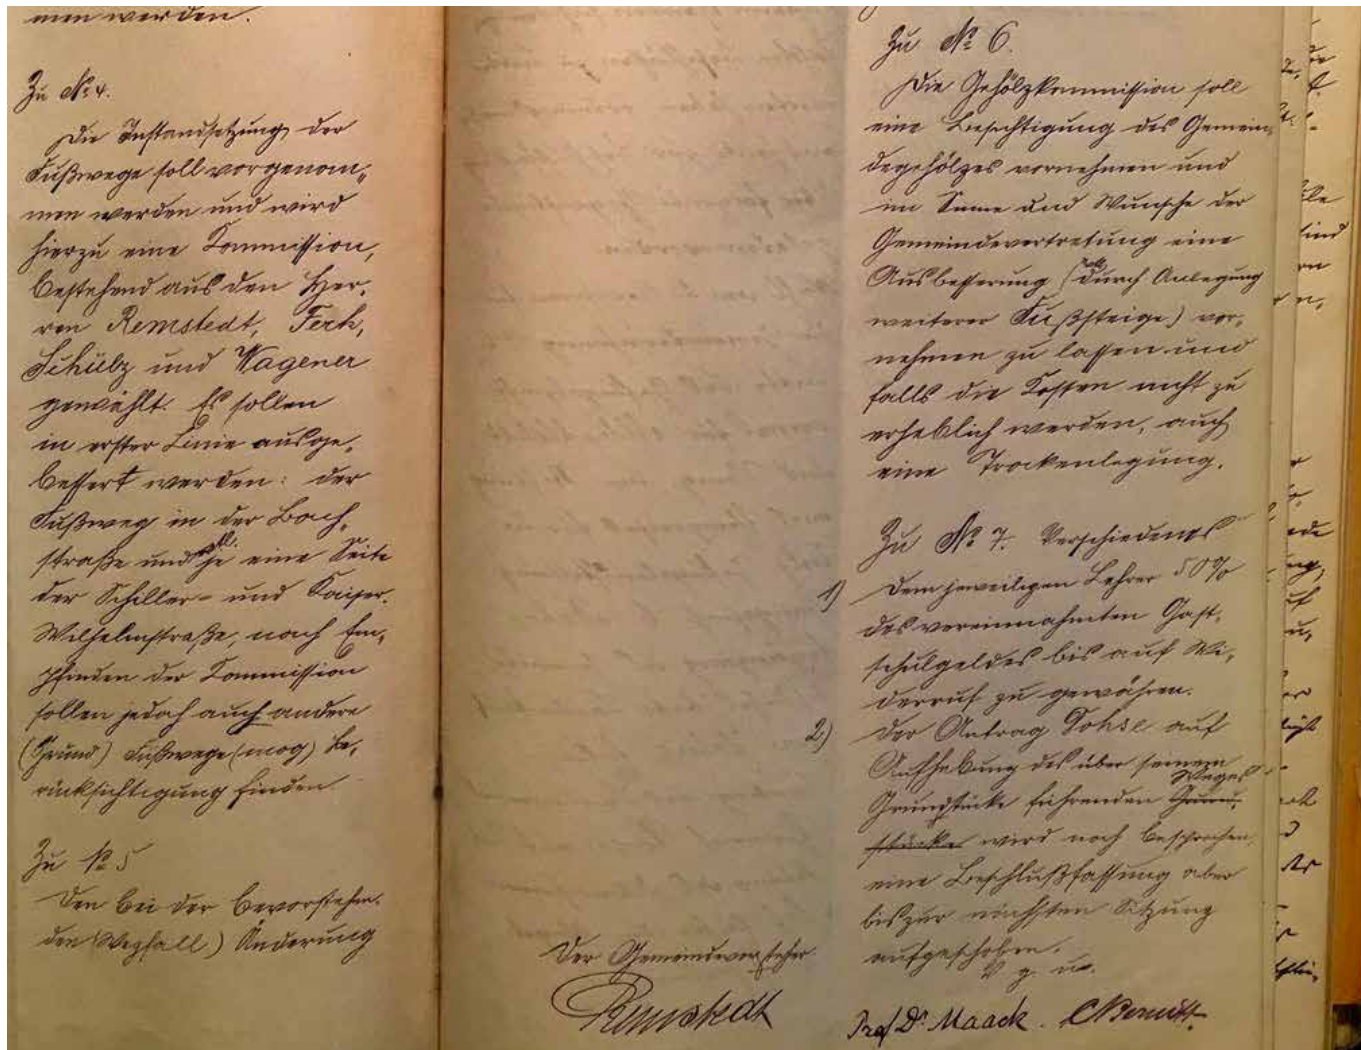 men werden.
Zu No 4.
Die Instandsetzung der
Fußwege soll vorgenom-
men werden und wird
hierzu eine Kommission,
bestehend aus den Her-
ren Remstedt, Ferk,
Schülz und Wagener
gewählt. Es sollen
in erster Linie ausge-
bessert werden: der
Fußweg in der Bach-
straße und je eine Seite
der Schiller- und Kaiser-
Wilhelmstraße, nach Em-
pfinden der Kommission
sollen jedoch auch andere
(Grund) Fußwege (mog) be-
rücksichtigung finden
Zu No 5
Den bei der bevorstehen-
den (Wegfall) Änderung
Der Gemeindevorsteher.
Remstedt
Zu No 6.
Die Gehölzkommission soll
eine Besichtigung des Gemein-
degehölzes vornehmen und
im Sinne und Wunsche der
Gemeindevertretung eine
Ausbesserung (durch Anlegung
weiterer Fußsteige) vor-
nehmen zu lassen und
falls die Kosten nicht zu
erheblich werden, auch
eine Trockenlegung.
Zu No 7. Verschiedenes
1) Dem jeweiligen Lehrer 50%
des vereinnahmten Gast-
schulgeldes bis auf Wi-
derruf zu gewähren.
2) Der Antrag Dohse auf
Aufhebung des über seinem
Grundstücke führenden Grund- Weges
stückes wird noch besprochen,
eine Beschlußfassung aber
bis zur nächsten Sitzung
aufgeschoben.
V. g. u.
Prof Dr. Maack. C Berndt